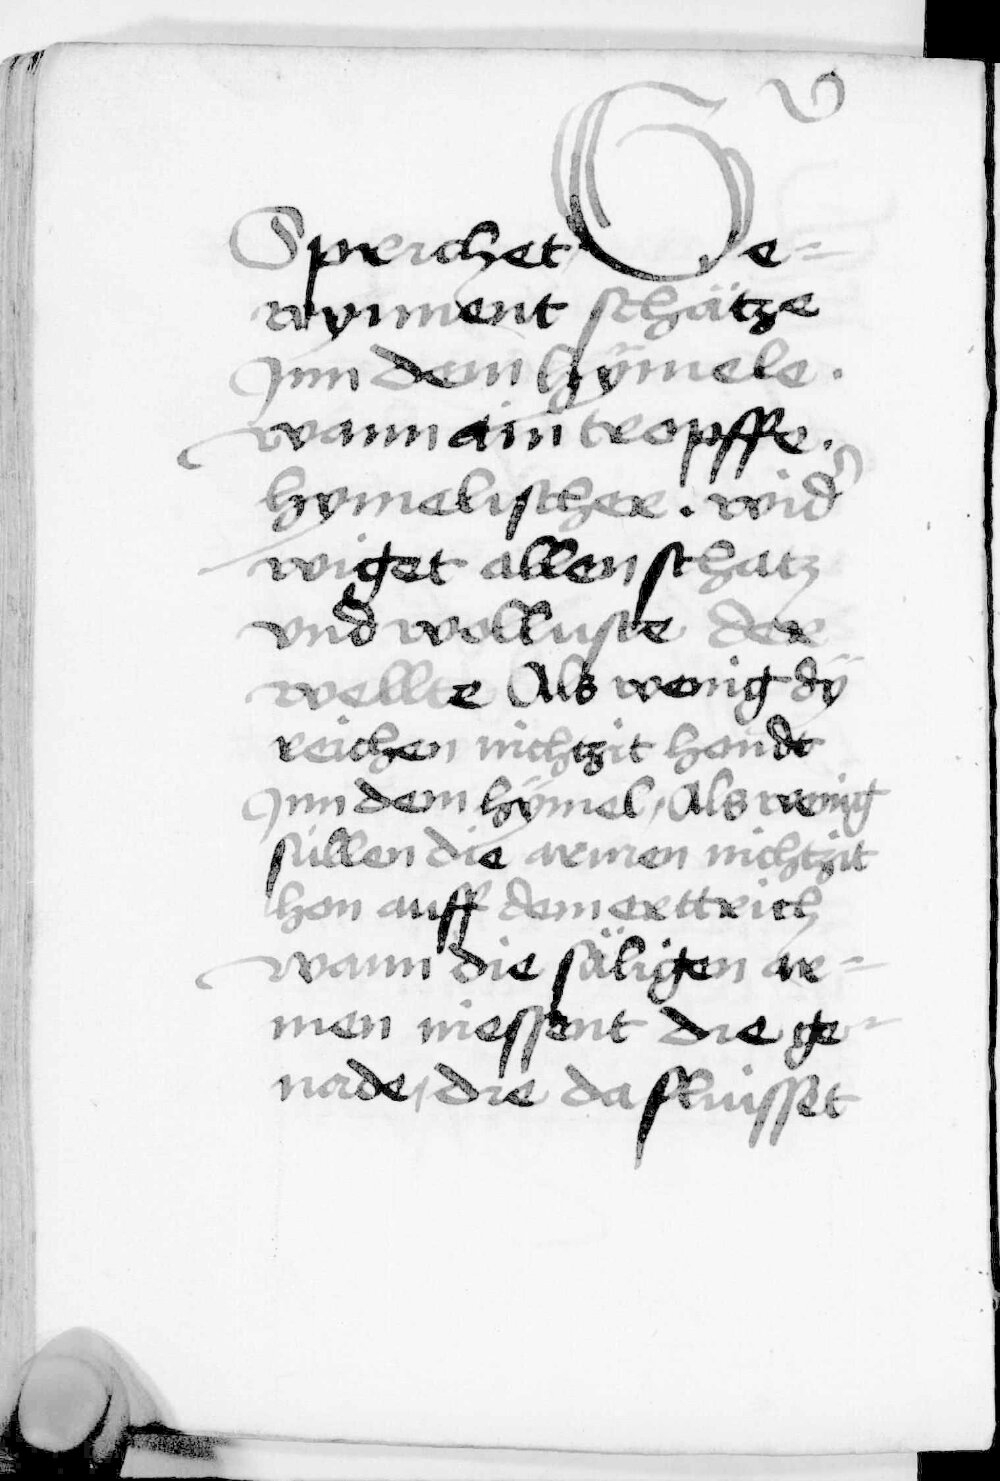 Sprichet Ge=
wynnent schätze
Jnn dem hÿmele.
wann ain tropffe.
hymelischer. wid͛
wiget allen schatz
vnd wolluste der
wellte Als wenig dÿ
reichen nichtzit hondt
Jnn dem hÿmel, Als wenig
süllen die armen nichtzit
hon auff dem erttrich
wann die säligen ar=
men niessent die ge=
nade, die da flüsset